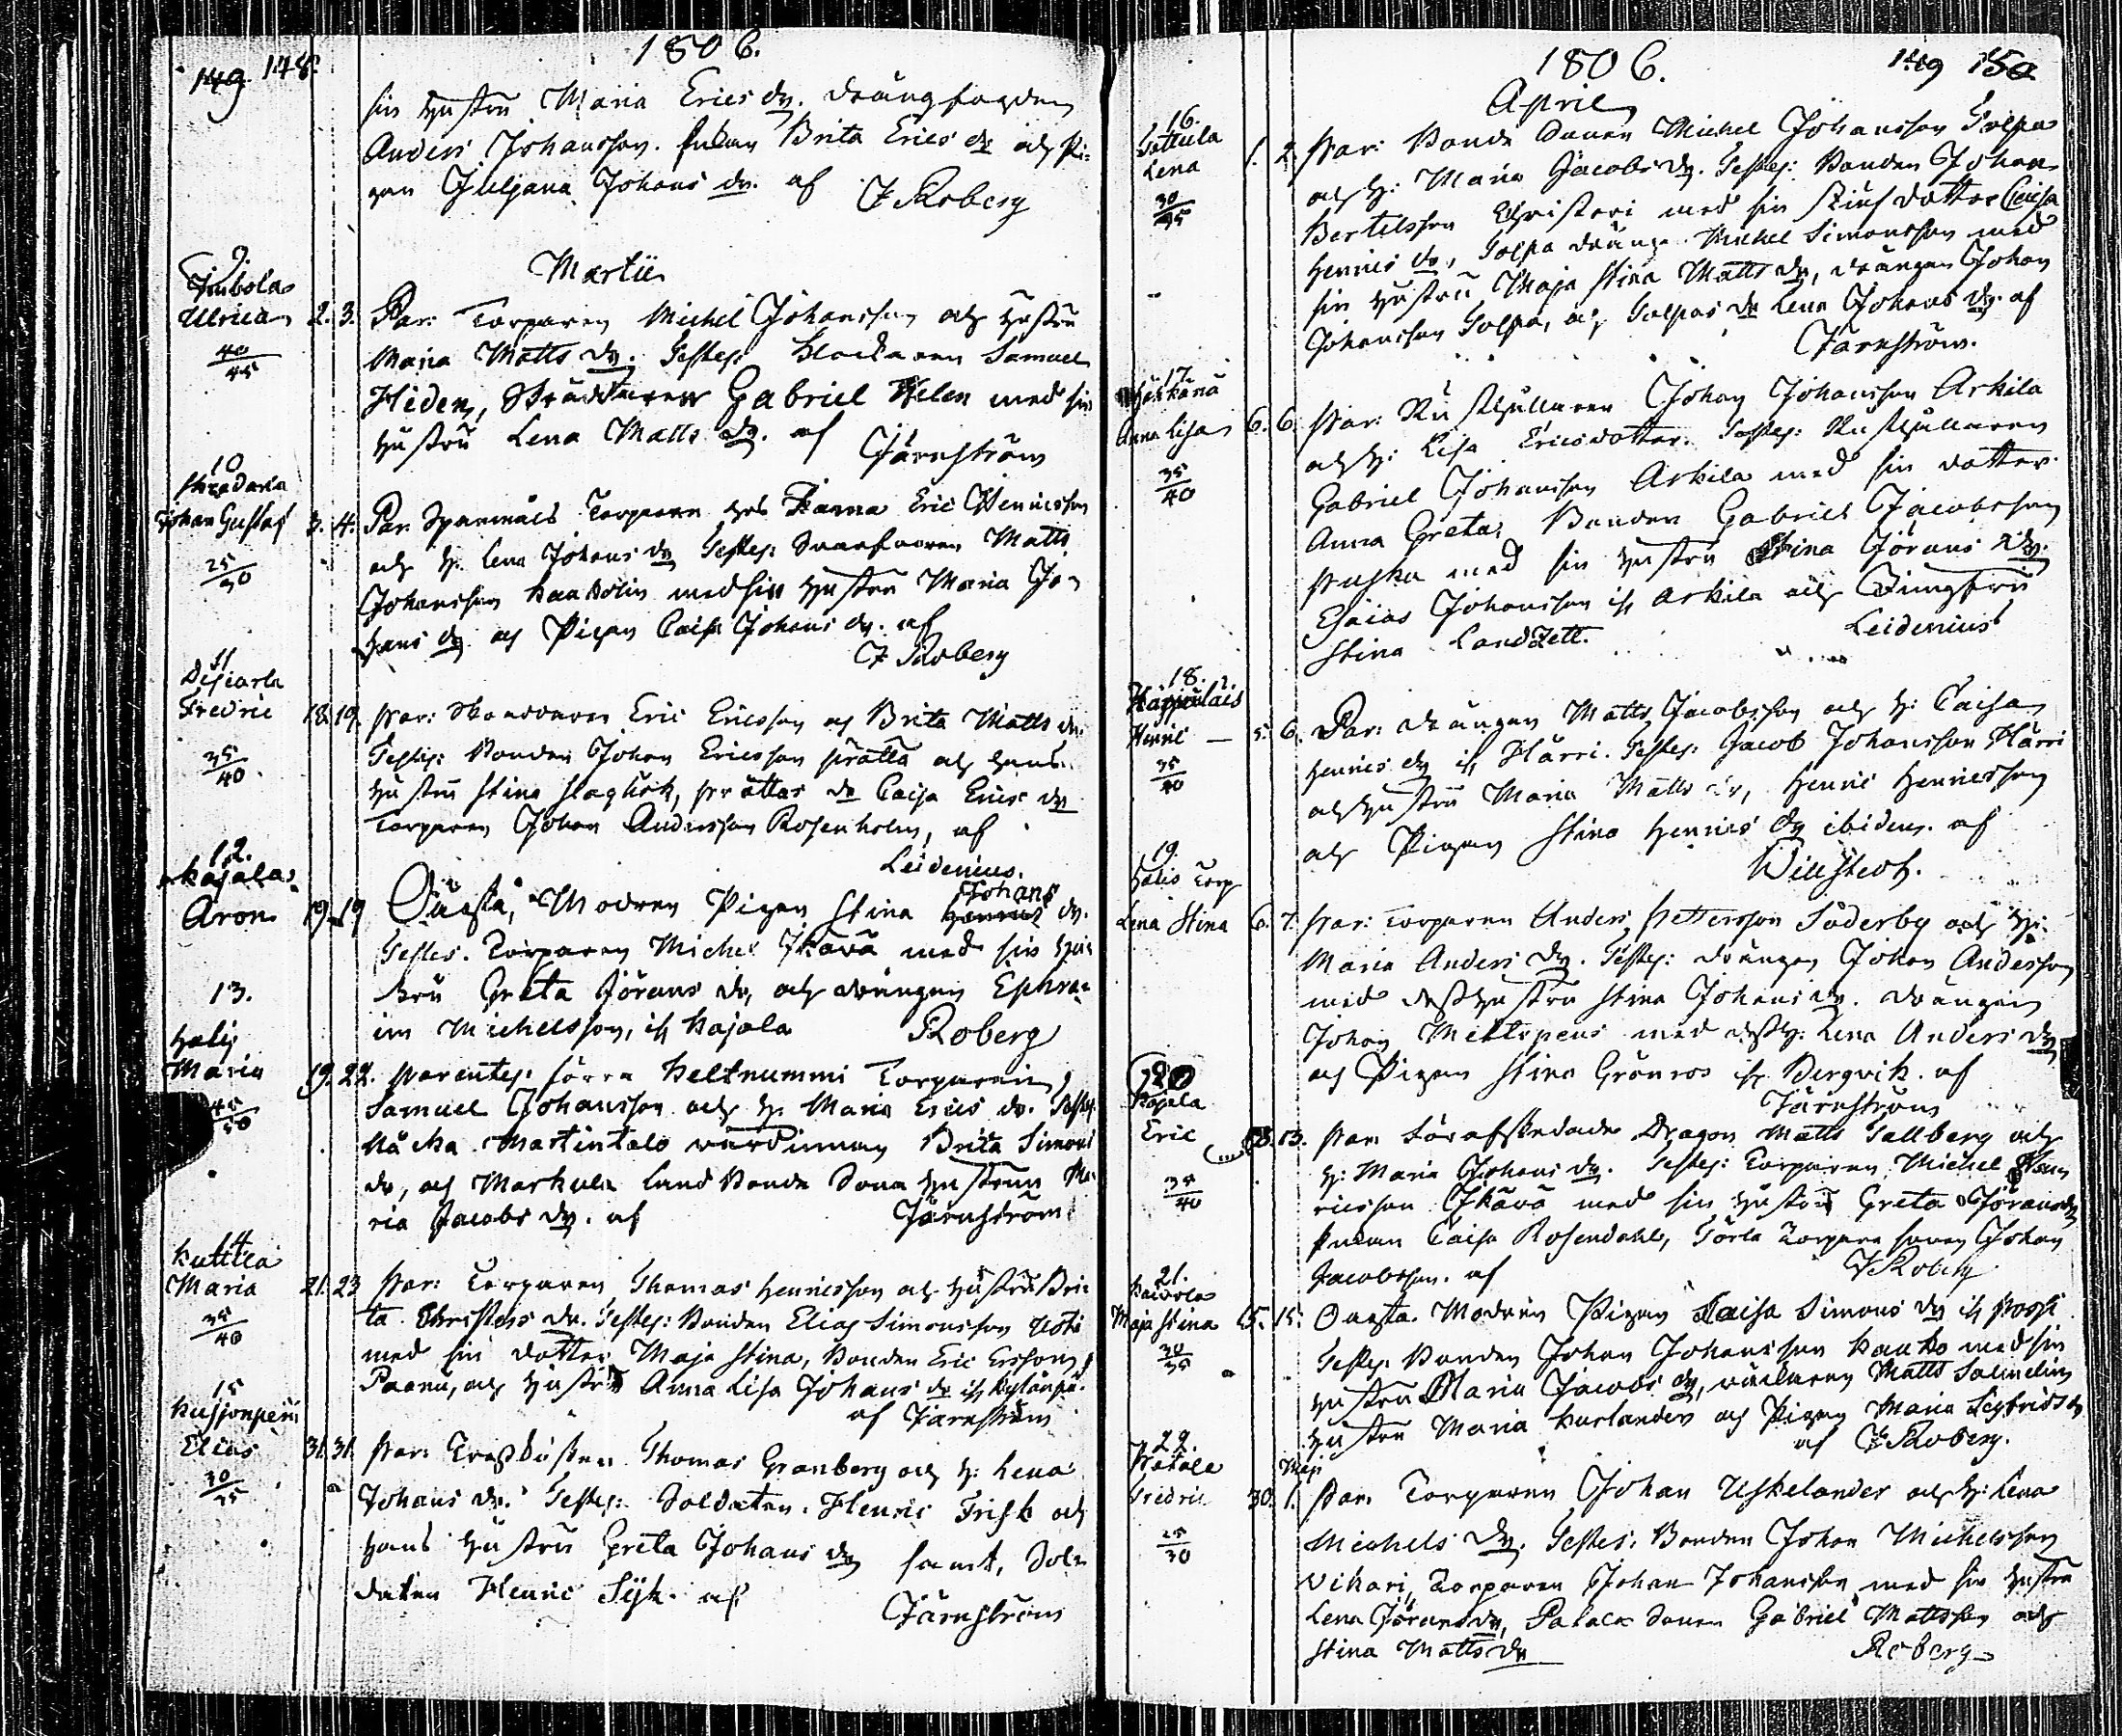 149 148.
1806.
sin hustru Maria Erics dr. drängfogden
Anders Johansson. Enkan Brita Erics dr och Pi-
gan Juljana Johans dr. af J Roberg
Martii
9.
Ulrica 2. 3. Par: Torparen Michel Johansson och hustru
40/45 Maria Matts dr. Testes: Klockaren Samuel
Hiden, Gabriel Helen med sin
hustru Lena Matts dr. af Järnström
10
Johan Gustaf 3. 4. Par. Torparen Eric Henricsson
25/30 och h. Lena Johans dr Testes: Matts
Johansson med sin hustru Maria Jo-
hans dr och Pigan Caisa Johans dr. af
J Roberg
11
Fredric 18. 19. Par: Eric Ericsson och Brita Matts dr.
35/40 Testes: Bonden Johan Ericsson Prätta och hans
hustru Stina, Prättas dr Caisa Erics dr
Torparen Johan Andersson Rosenholm, af
Leidenius.
12.
Kajala
Aron 19. 19 Oäkta, Modren Pigan Stina Johans dr.
Testes. Torparen Michel Ikävä med sin hu-
stru Greta Jörans dr, och drängen Ephra-
im Michelsson, ifr Kajala Roberg
13.
Maria 19. 22. Parentes: förra Keltnummi Torparen,
45/50 Samuel Johansson och h. Maria Erics dr. Testes
Martintalo värdinnan Brita Simons
dr, och Markula hustrun Ma-
ria Jacobs dr. af Järnström
14
Kuttila
Maria 21. 23 Par: Torparen Thomas Henricsson och hustru Bri-
35/40 ta Christers dr. Testes: Bonden Elias Simonsson Uoti
med sin dotter Maja Stina, Bonden Eric Ersson
Paanu, och hustru Anna Lisa Johans dr ifr
af Järnström
15
Elias 31. 31. Par: Thomas Granberg och h: Lena
30/35 Johans dr. Testes: Soldaten Henric Frisk och
hans hustru Greta Johans dr samt, Sol-
daten Henric Sijk. af
Järnström
1806. 149 150
April
16.
Lena 1. 2. Par: Bonde Sonen Michel Johansson Solpa
30/35 och h: Maria Jacobs dr. Testes: Bonden Johan
Bertelsson med sin Stiufdotter Caisa
Henrics dr, Solpa dräng Michel Simonsson med
sin hustru Maja Stina Matts dr, drängen Johan
Johansson Solpa, och Solpas dr Lena Johans dr. af
Järnström.
17.
Anna Lisa 6. 6. Par: Rusthållaren Johan Johansson Arkila
35/40 och h: Lisa Ericsdotter. Testes: Rusthållaren
Gabriel Johansson Arkila med sin dotter
Anna Greta, Bonden Gabriel Jacobsson
med sin hustru Stina Jörans dr.
Esaias Johansson ifr Arkila och Jungfru
Stina Landzett. Leidenius
18.
Henric 5. 6. Par: drängen Matts Jacobsson och h: Caisa
35/40 Henrics dr ifr Härri. Testes: Jacob Johansson Härri
och hustru Maria Matts dr, Henric Henricsson
och Pigan Stina Henrics dr ibidem. af
Willstedt.
19.
Halis Torp
Lena Stina 6. 7. Par: Torparen Anders Pettersson Söderby och h:
Maria Anders dr. Testes: drängen Johan Andersson
med dess hustru Stina Johans dr. drängen
Johan med dess h: Lena Anders dr
och Pigan Stina Grönroos ifr Bergvik. af
Järnström
20
Eric 13. Par: för afskedade Dragon Matts Sallberg och
35/40 h: Maria Johans dr. Testes: Torparen Michel Hen-
ricsson Ikävä med sin hustru Greta Jörans dr
Enkan Caisa Rosendahl, Torpare sonen Johan
Jacobsson. af J Roberg
21.
Maja Stina 15. 15. Oäkta. Modren Pigan Caisa Simons dr ifr
30/35 Testes Bonden Johan Johansson Kauko med sin
hustru Maria Jacobs dr, Matts Salmelin
hustru Maria Karlander och Pigan Maria Sigfrids dr
af J Roberg.
22. Maji
Fredric 30. 1. Par: Torparen Johan Uskelander och h: Lena
25/30 Michels dr. Testes: Bonden Johan Michelsson
Vihari, Torparen Johan Johansson med sin hustru
Lena Jörans dr, Sonen Gabriel Mattsson och
Stina Matts dr Roberg